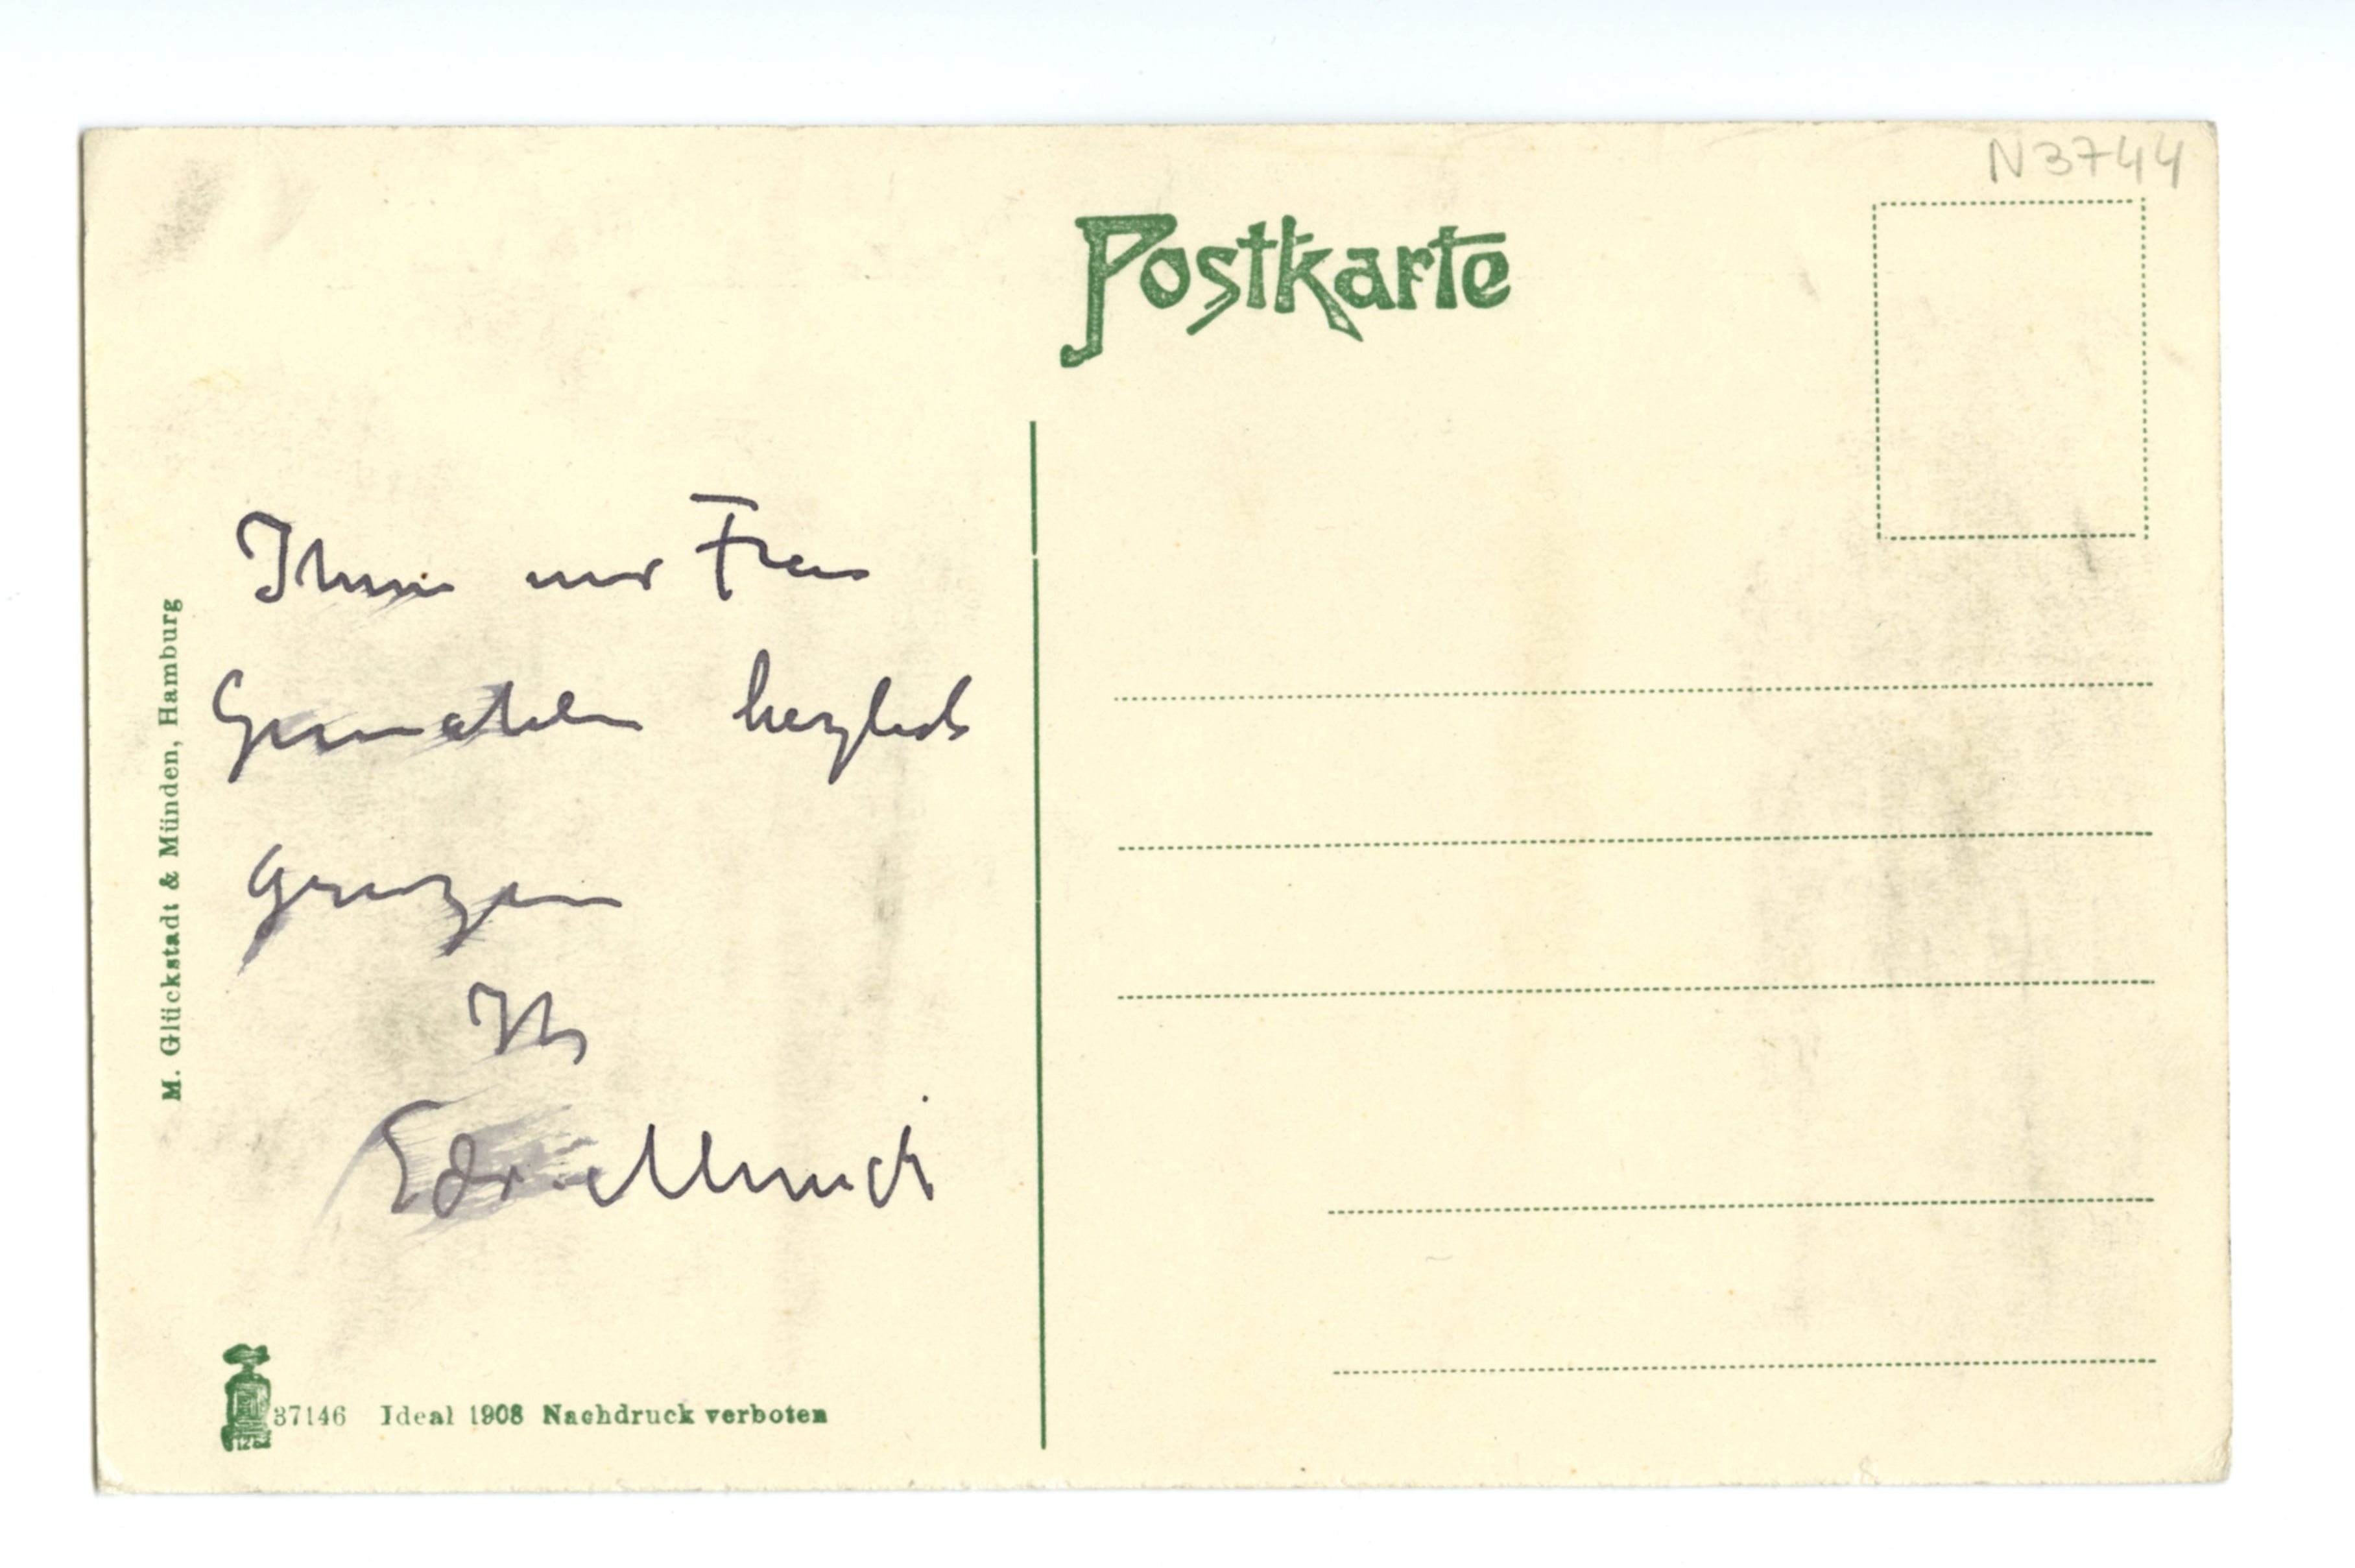 N3744
Postkarte
Ihnen und Frau
Gemahlen herzlich
gruzen
Ihr
Edv. Munch
M. Glückstadt & Münden, Hamburg
37146 Ideal 1908 Nachdruck verboten